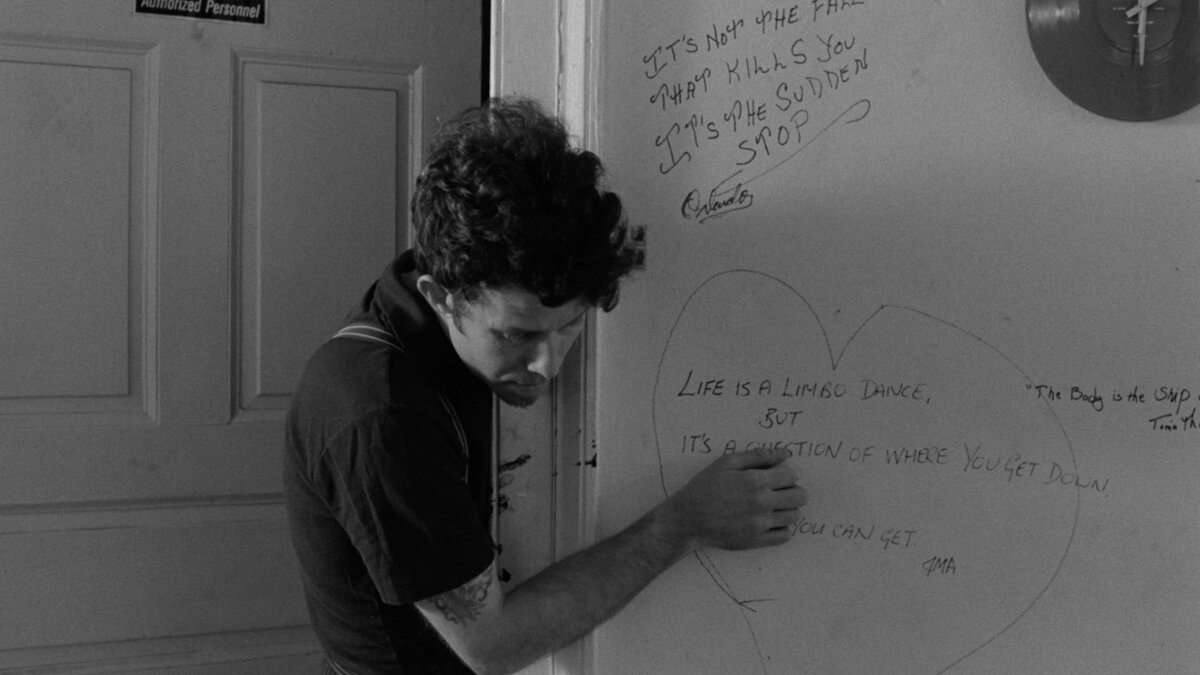 Authorized Personnel
IT'S NOT THE FALL
THAT KILLS YOU
IT'S THE SUDDEN
STOP
Orlando
LIFE IS A LIMBO DANCE,
BUT
IT'S A QUESTION OF WHERE YOU GET DOWN,
YOU CAN GET.
JMA
"The Body is the Ship